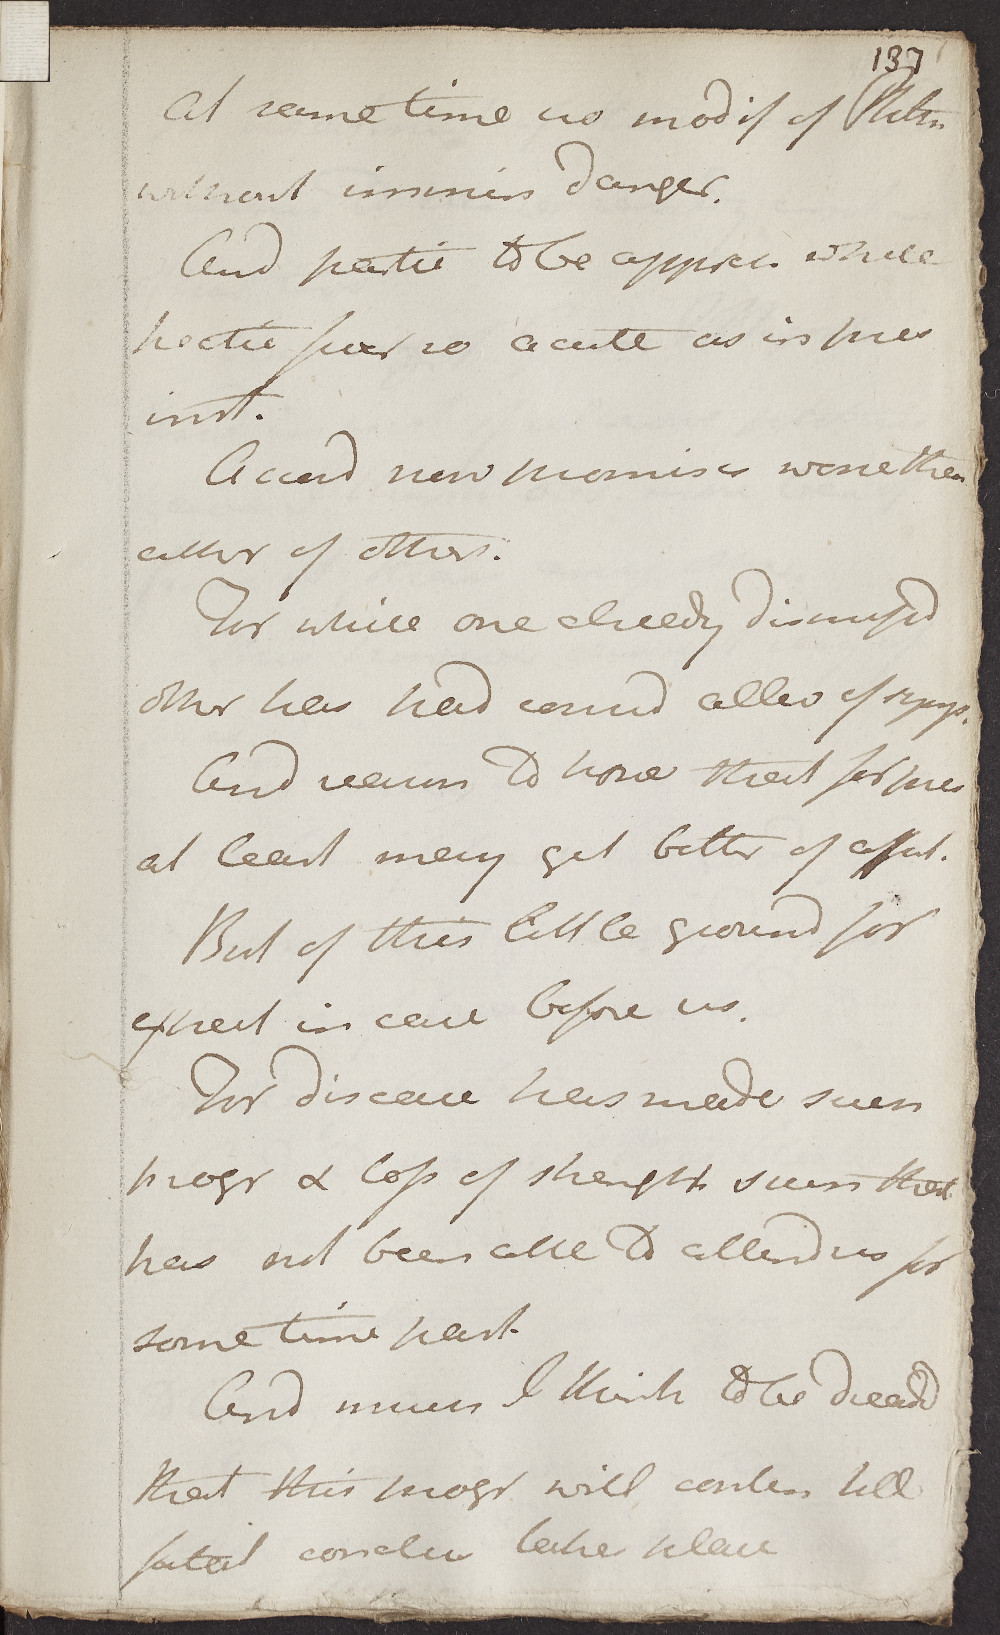 137
At same time no modif of Phthis
without immin danger.
And partic to be appreh where
hectic fever so acute as in pres
inst.
Accord new promises more than
either of others.
For while one already dismissd
other has had consid allev of symp.
And reason to hope that for pres
at least may get better of affect.
But of this little ground for
expect in case before us.
For disease has made such
progr & loss of strength such that
has not been able to attend us for
some time past.
And much I think to be dreadd
that this progr will contin till
fatal conclu take place